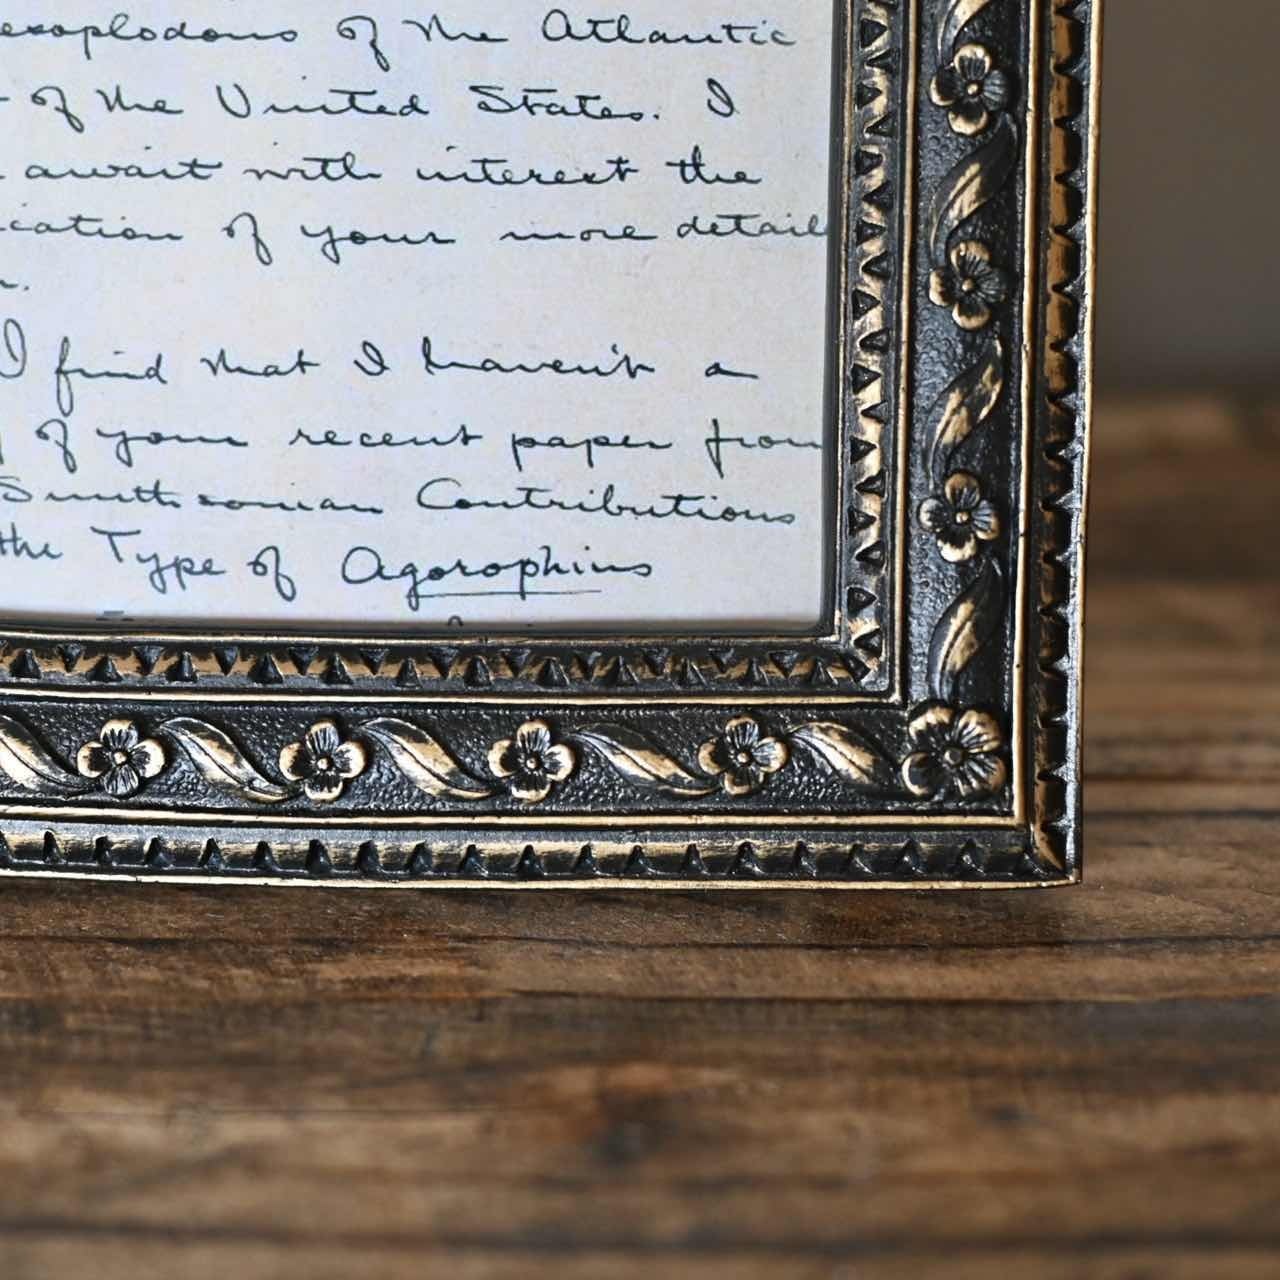 of the Atlantic
of the United States. I
await with interest the
ication of your more detail
I find that I haven't a
of your recent paper from
Smithsonian Contributions
the Type of Agorophius